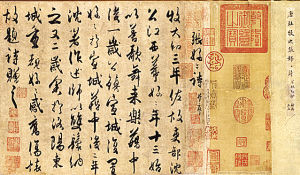 唐杜牧張好好詩
張好好詩
牧大和三年佐故吏部沈
公江西幕好好年十三始
以善歌來樂籍中
後一歲公鎮宣城復置
好好於宣城籍中後二年
沈著作述師以雙鬟納
之又二歲余於洛陽東
城重覩好好感舊傷懷
故題詩贈之